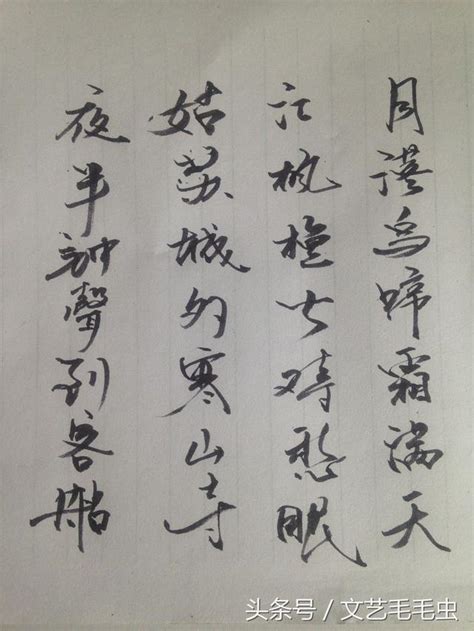 月落乌啼霜满天
江枫渔火对愁眠
姑苏城外寒山寺
夜半钟聲到客船
头条号/文艺毛毛虫